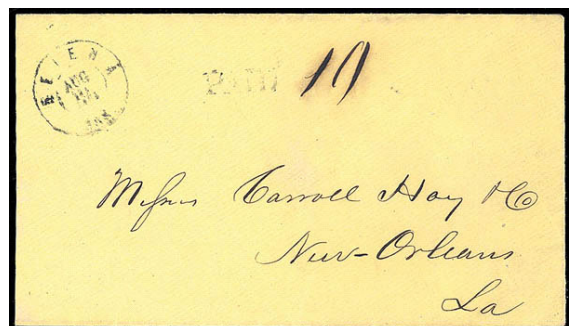 HELENA
AUG
PAID 10
Messrs Carroll Hoy & Co
New-Orleans
La